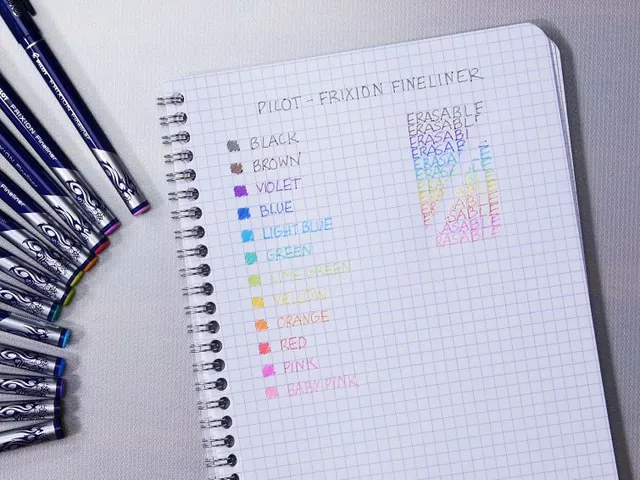 PILOT - FRIXION FINELINER
BLACK
BROWN
VIOLET
BLUE
LIGHT BLUE
GREEN
LIME GREEN
YELLOW
ORANGE
RED
PINK
BABY PINK
ERASABLE
ERASABLE
ERASABL
ERASAB
ERASA LE
ERAS LE
SABLE
ASABLE
RASABLE
PILOT FRIXION Fineliner
PILOT FRIXION Fineliner
FRIXION Fineliner
Fineliner